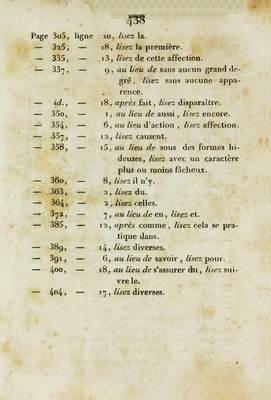 438
Page 305, ligne 20, lisez la.
— 325, — 18, lisez la première.
— 335, — 13, lisez de cette affection.
— 337, — 9, au lieu de sans aucun grand de-
gré, lisez sans aucune appa-
rence.
— id., — 18, après fait, lisez disparaître.
— 350, — 1, au lieu de aussi, lisez encore.
— 354, — 6, au lieu d'action, lisez affection.
— 357, — 12, lisez causent.
— 358, — 15, au lieu de sous des formes hi-
deuses, lisez avec un caractère
plus ou moins fâcheux.
— 360, — 8, lisez il n'y.
— 363, — 2, lisez du.
— 364, — 2, lisez celles.
— 372, — 7, au lieu de en, lisez et.
— 385, — 12, après comme, lisez cela se pra-
tique dans.
— 389, — 14, lisez diverses.
— 391, — 6, au lieu de savoir, lisez pour.
— 400, — 18, au lieu de s'assurer du, lisez sui-
vre le.
— 404, — 17, lisez diverses.